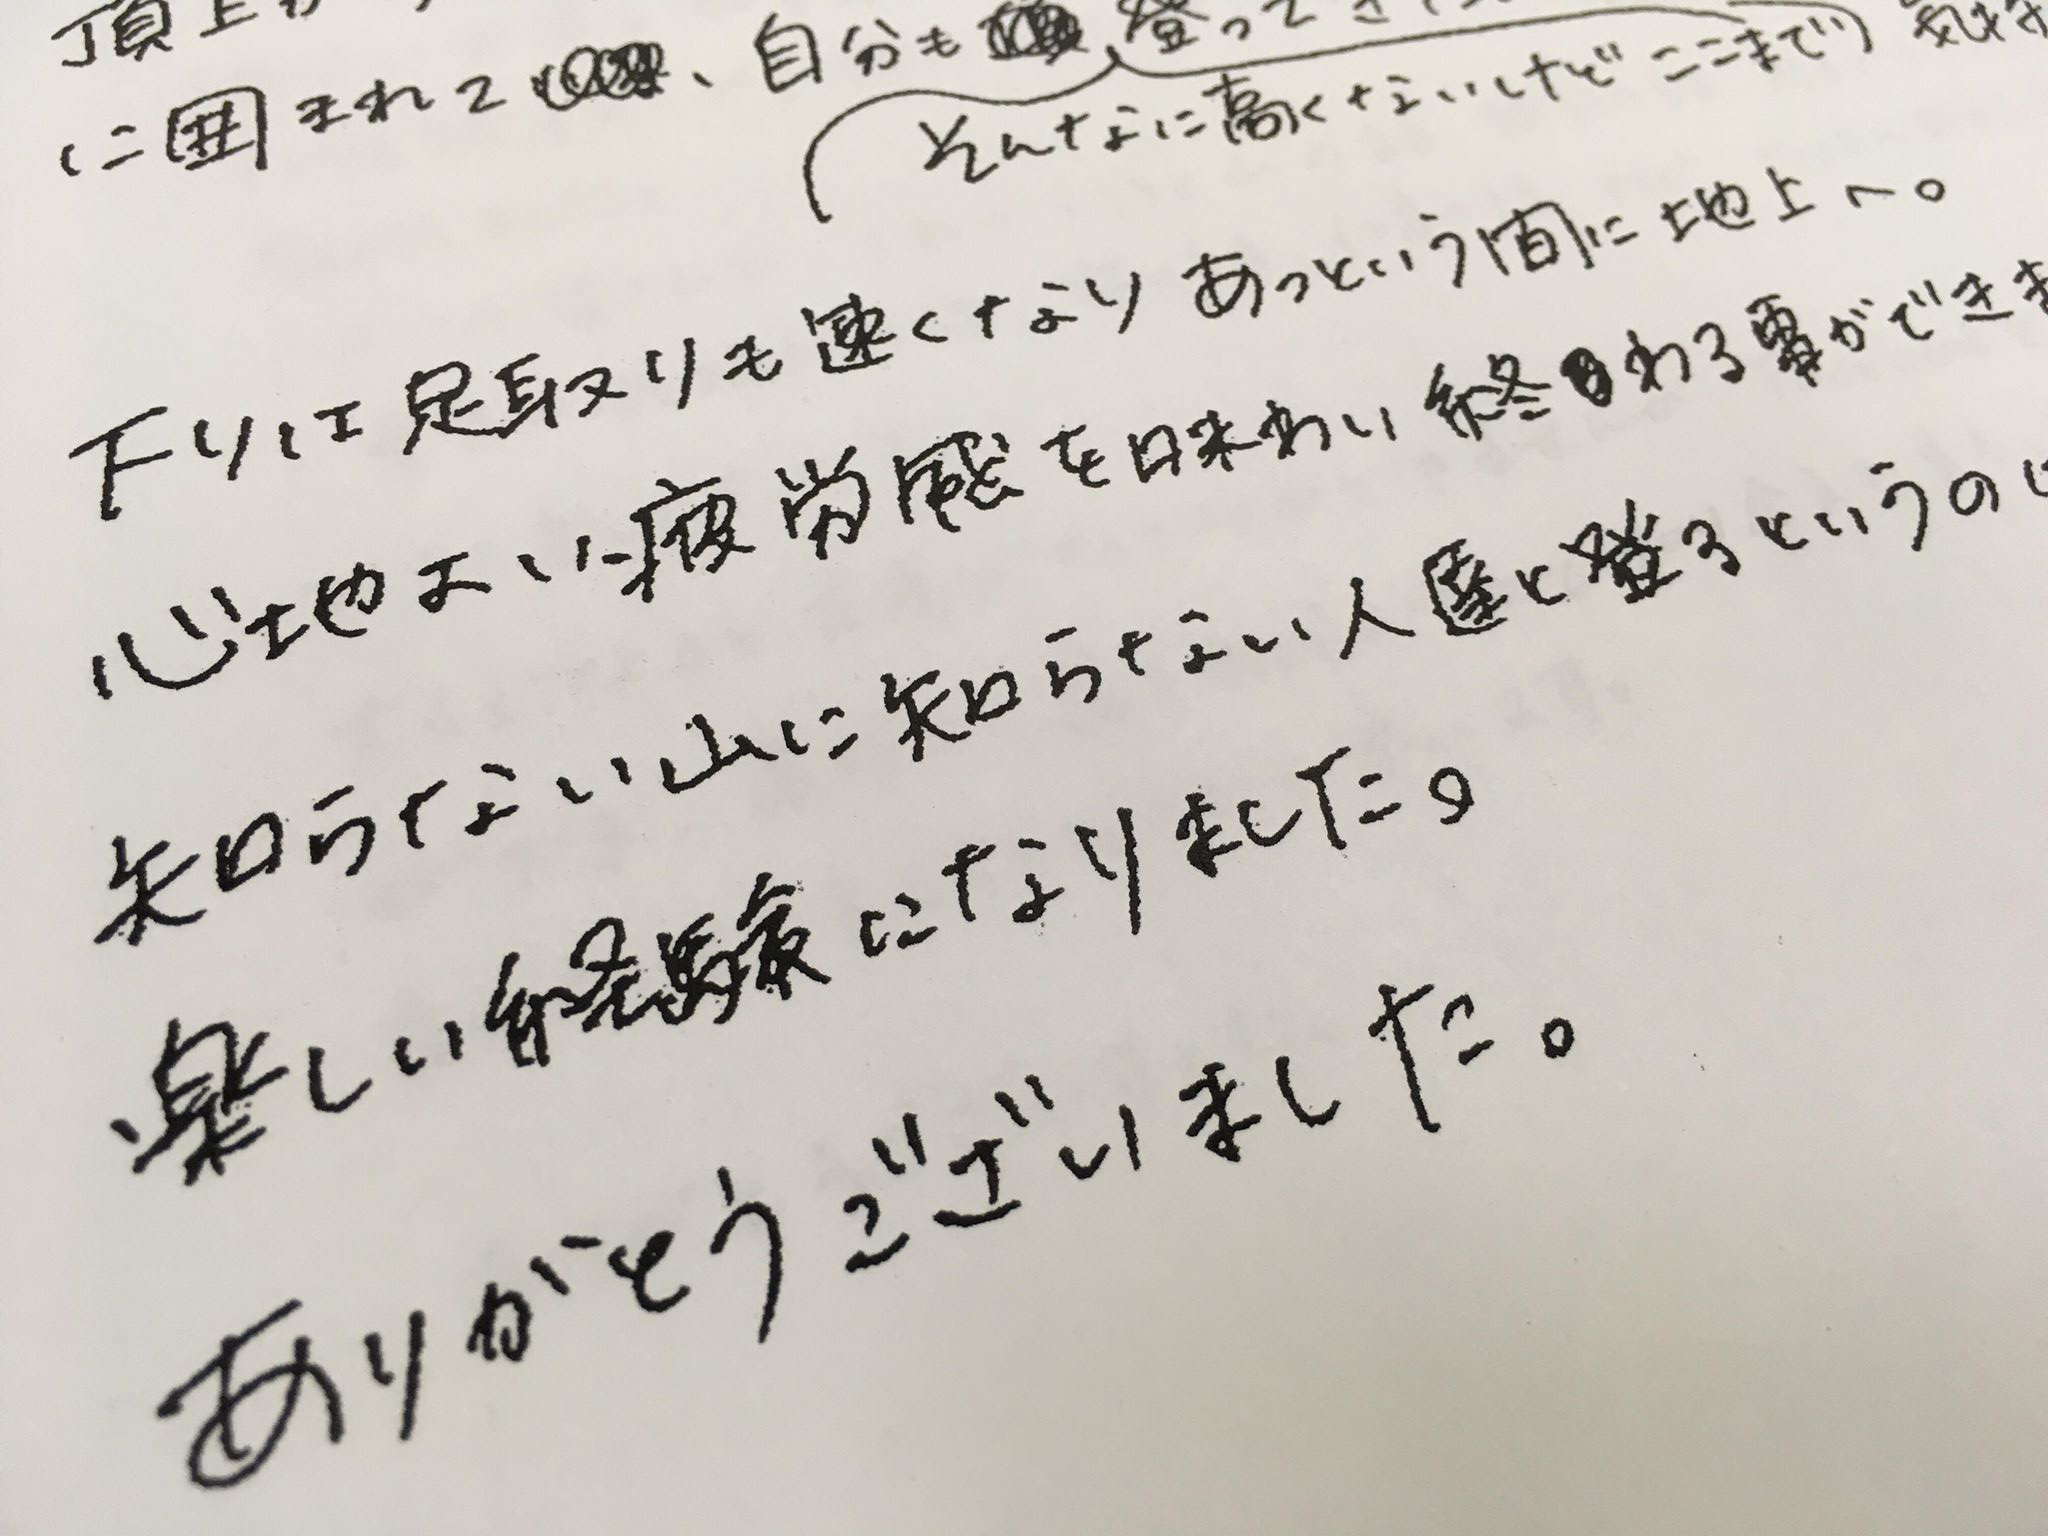 頂上
に囲まれて、自分も登ってき
そんなに高くないけどここまで
下りは足取りも速くなりあっという間に地上へ。
心地よい疲労感を味わい終わる事ができま
知らない山に知らない人達と登るというのは
楽しい経験になりました。
ありがとうございました。